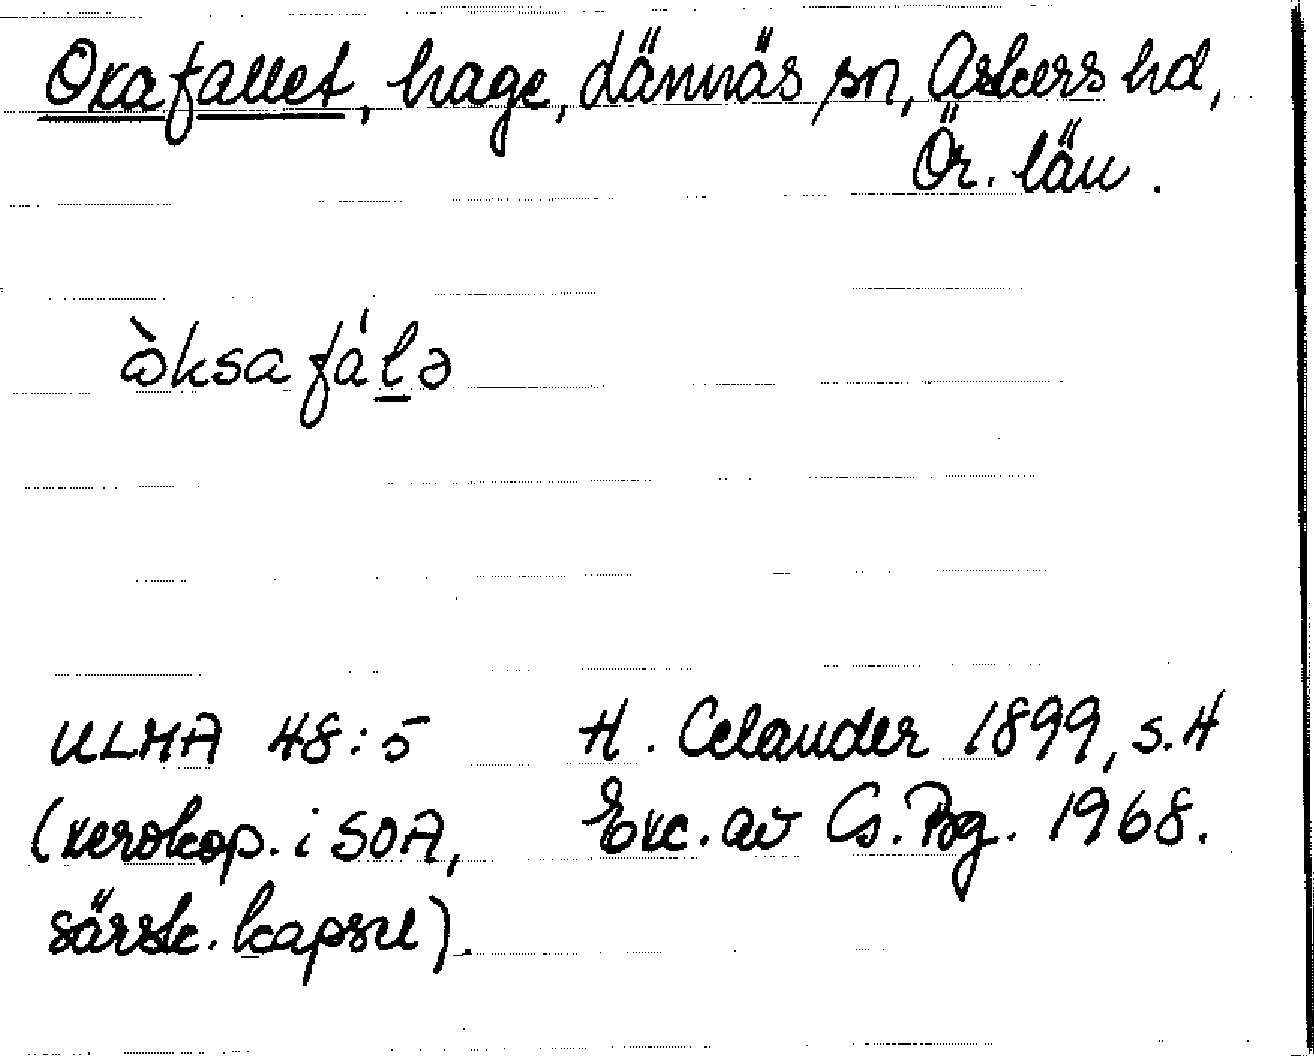 Oxafallet, hage, Lännäs sn, Askers hd,
Ör. län.
ὰksa fá'l̲ə
ULMA 48:5 H. Celander 1899, s.4
(xerokop. i SOA, Exc. av Cs. Bg. 1968.
särsk. kapsel).